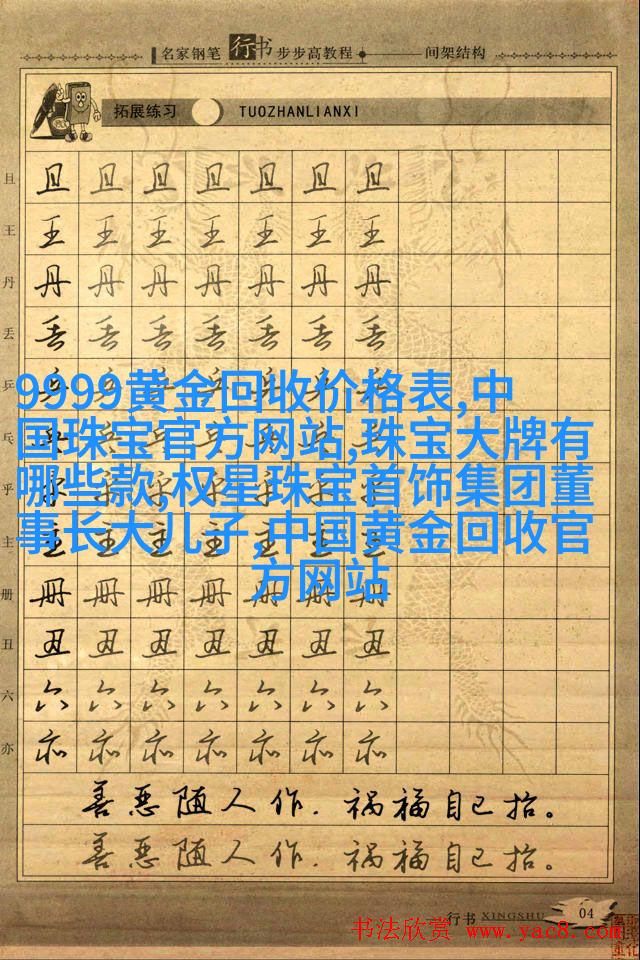 名家钢笔行书步步高教程 间架结构
拓展练习 TUOZHANLIANXI
且 且 且 且 且 且 且 且
王 王 王 王 王 王 王 王
丹 丹 丹 丹 丹 丹 丹 丹
丢 丢 丢 丢 丢 丢 丢 丢
乒
9999黄金回收价格表,中
国珠宝官方网站,珠宝大牌有
哪些款,权星珠宝首饰集团董
事长大儿子,中国黄金回收官
方网站
乓
乎
主
册 册 册 册 册 册 册 册
丑 丑 丑 丑 丑 丑 丑 丑
六 六 六 六 六 六 六 六
亦 亦 亦 亦 亦 亦 亦 亦
善恶随人作.祸福自己招。
善恶随人作.祸福自己招。
行书 XINGSHU 04
书法欣赏 www.yac8.com